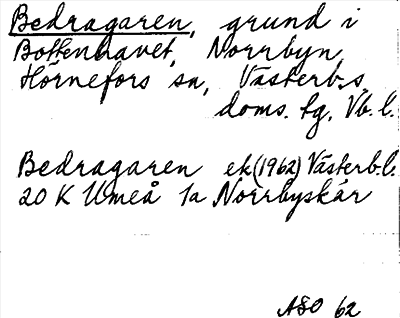 Bedragaren, grund i
Bottenhavet, Norrbyn,
Hörnefors sn, Västerb. s.
doms. tg, Vb. l.
Bedragaren ek (1962) Västerb. l.
20 K Umeå 1a Norrbyskär
ASO 62